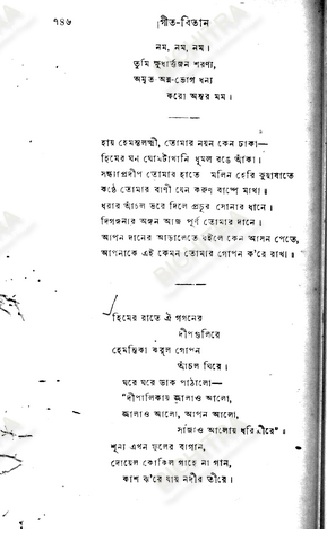 ৭৪৬ গীত-বিতান
নম, নম, নম।
তুমি ক্ষুধার্তজন শরণ্য,
অমৃত অন্ন-ভোগ ধন্য
করো অন্তর মম।
হায় হেমন্তলক্ষ্মী, তোমার নয়ন কেন ঢাকা—
হিমের ঘন ঘোমটাখানি ধূমল রঙে আঁকা।
সন্ধ্যাপ্রদীপ তোমার হাতে মলিন হেরি কুয়াষাতে
কণ্ঠে তোমার বাণী যেন করুণ বাষ্পে মাখা।
ধরার আঁচল ভরে দিলে প্রচুর সোনার ধানে।
দিগঙ্গনার অঙ্গন আজ পূর্ণ তোমার দানে।
আপন দানের আড়ালেতে রইলে কেন আসন পেতে,
আপনাকে এই কেমন তোমার গোপন ক'রে রাখা॥
হিমের রাতে ঐ গগনের
দীপ গুলিরে
হেমন্তিকা করল গোপন
আঁচল ঘিরে।
ঘরে ঘরে ডাক পাঠালো—
"দীপালিকায় জ্বালাও আলো,
জ্বালাও আলো, আপন আলো,
সাজাও আলোয় ধরিত্রীরে"।
শূন্য এখন ফুলের বাগান,
দোয়েল কোকিল গাহে না গান,
কাশ ঝ'রে যায় নদীর তীরে।